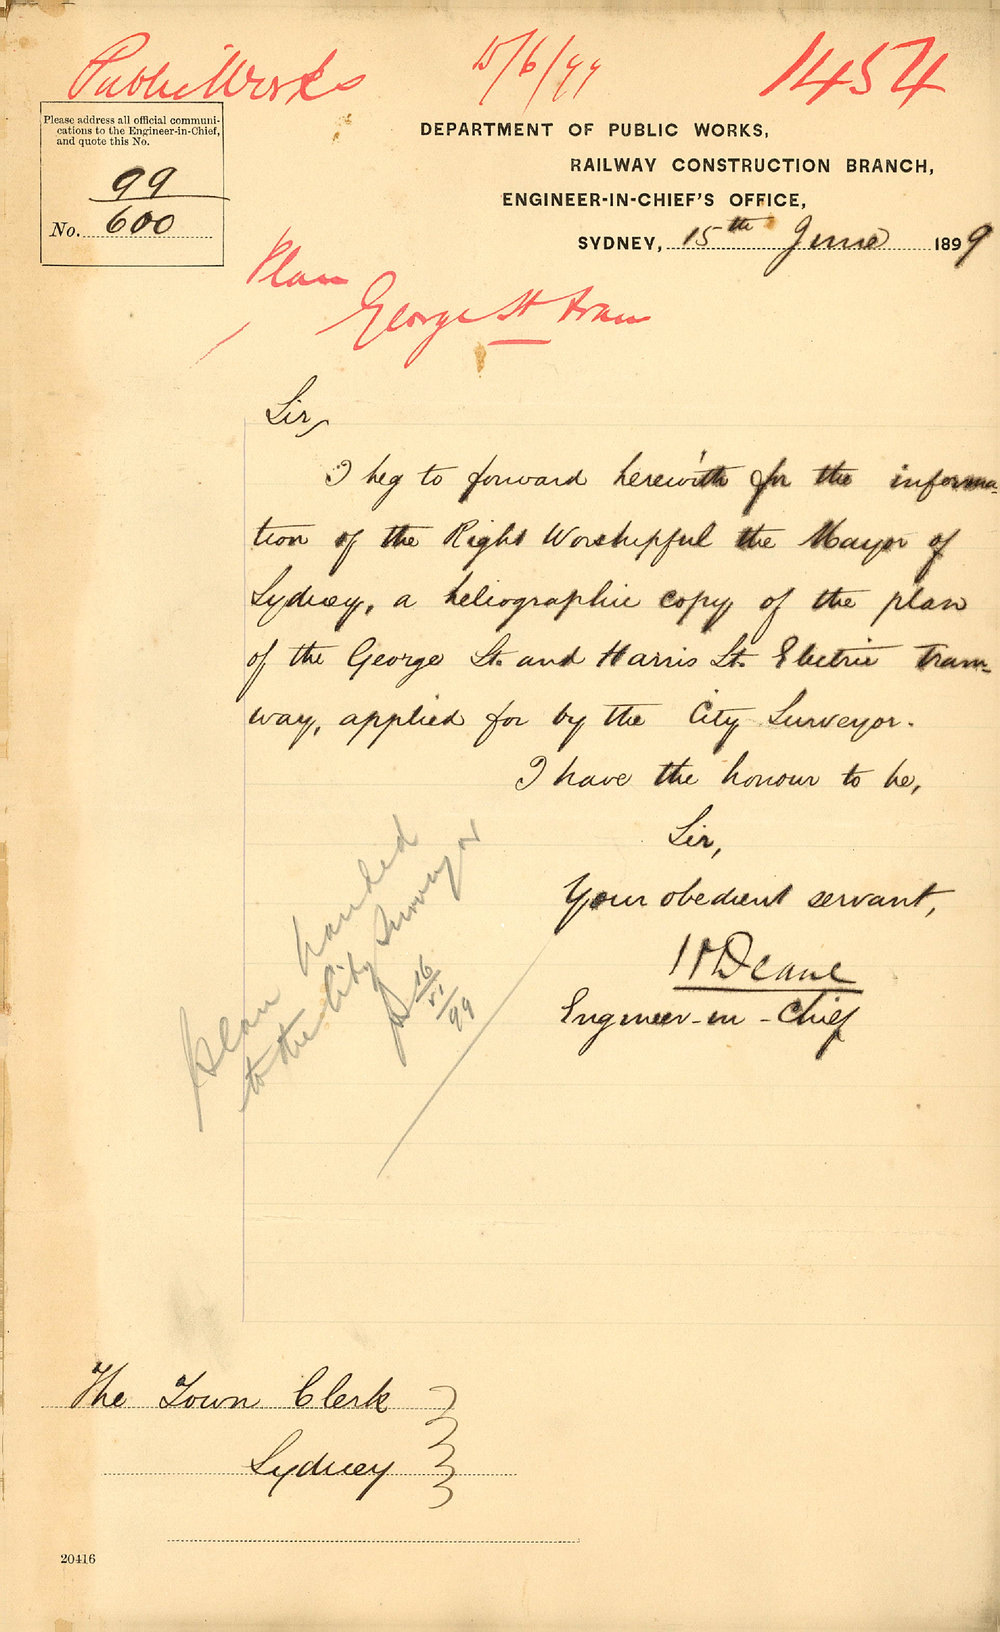 Public Works
15/6/99
1454
Please address all official communi-
cations to the Engineer-in-Chief,
and quote this No.
99
No. 600
DEPARTMENT OF PUBLIC WORKS,
RAILWAY CONSTRUCTION BRANCH,
ENGINEER-IN-CHIEF'S OFFICE,
SYDNEY, 15th June 1899
Plan
George St tram
Sir,
I beg to forward herewith for the informa-
tion of the Right Worshipful the Mayor of
Sydney, a heliographic copy of the plan
of the George St. and Harris St. Electric Tram-
way, applied for by the City Surveyor.
I have the honour to be,
Sir,
Your obedient servant,
H Deane
Engineer-in-Chief
plan handed
to the City Surveyor
16/VI/99
The Town Clerk
Sydney
20416